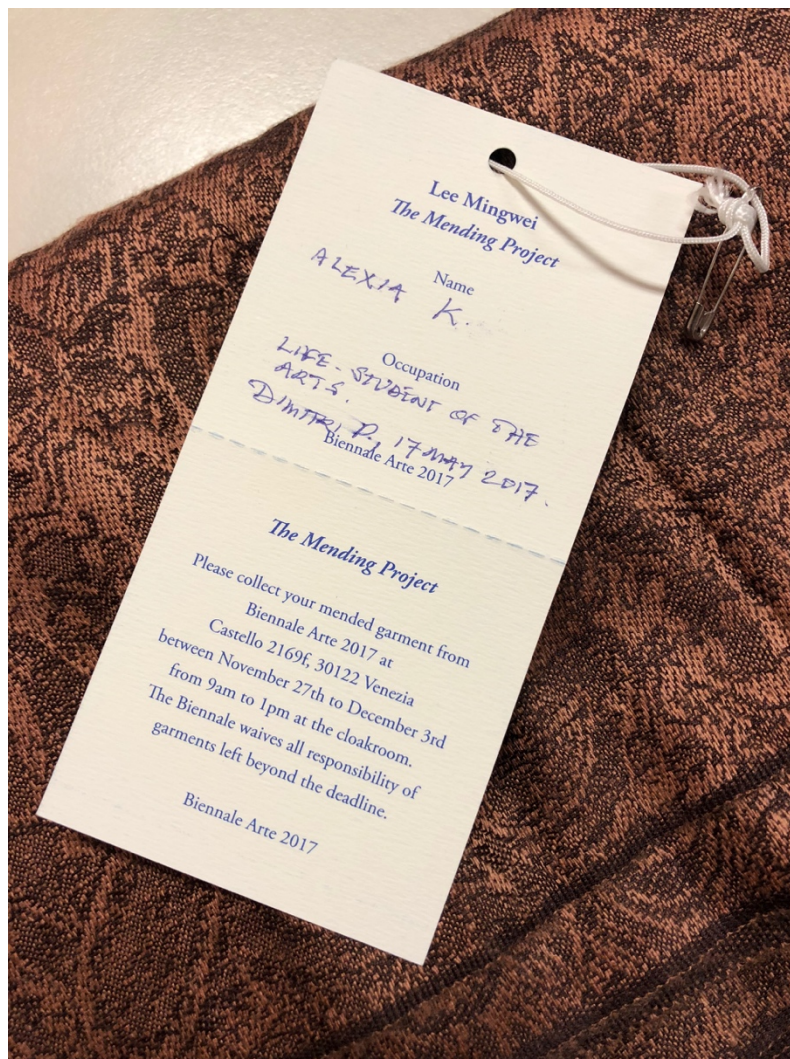 Lee Mingwei
The Mending Project
Name
ALEXIA K.
Occupation
LIFE-STUDENT OF THE
ARTS.
DIMITRI P., 17 MAY 2017.
Biennale Arte 2017
The Mending Project
Please collect your mended garment from
Biennale Arte 2017 at
Castello 2169f, 30122 Venezia
between November 27th to December 3rd
from 9am to 1pm at the cloakroom.
The Biennale waives all responsibility of
garments left beyond the deadline.
Biennale Arte 2017